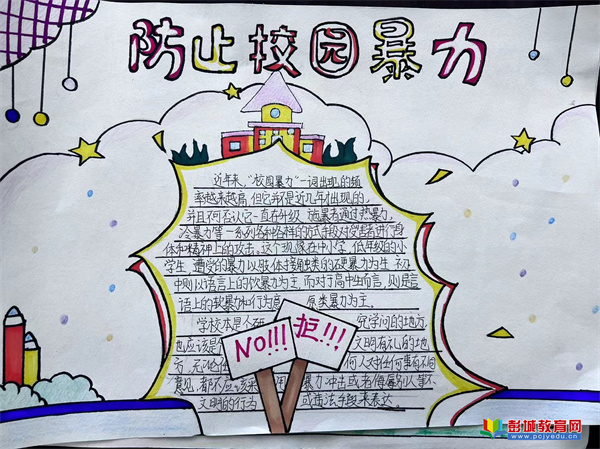 防止校园暴力
近年来，"校园暴力"一词出现的频
率越来越高，但它并不是近几年才出现的，
并且不可否认它一直在升级，施暴者通过热暴力、
冷暴力等一系列各种各样的方式手段对受害者进行身
体和精神上的攻击。这个现象在中小学，低年级的小
学生，遭受的暴力以肢体接触类的硬暴力为主，初
中则以语言上的软暴力为主，而对于高中生而言，则是言
语上的软暴力和行为 原类暴力为主。
学校本是个 究学问的地方，
也应该是 文明有礼的地
方，无论 何人对任何事有不同
意见，都不应该采 暴力冲击或者侮辱别人等不
文明的行为 或违法手段来表达。
NO!!!
拒!!!
彭城教育网
www.pcjyedu.cn